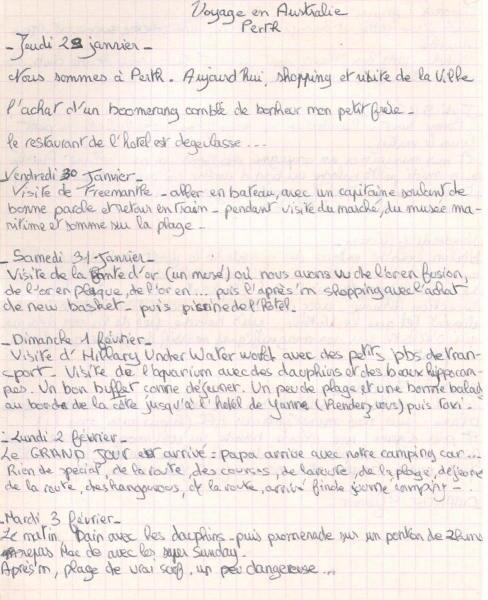 Voyage en Australie
Perth
- Jeudi 29 janvier -
Nous sommes à Perth. Aujourd'hui, shopping et visite de la ville
l'achat d'un boomerang comble de bonheur mon petit frère -
le restaurant de l'hotel est degeulasse ...
Vendredi 30 Janvier -
Visite de Freemantle - aller en bateau, avec un capitaine soulant de
bonne parole et retour en train - pendant visite du marché, du musée ma-
ritime et somme sur la plage -
- Samedi 31 Janvier -
Visite de la fonte d'or (un musé) où nous avons vu de l'or en fusion,
de l'or en plaque, de l'or en ... puis l'après'm shopping avec l'achat
de new basket - puis piscine de l'hotel -
- Dimanche 1 février -
Visite d'Hillary Under Water world avec des petits pbs de tran-
sport - Visite de l'aquarium avec des dauphins et des beaux hippocam-
pes. Un bon buffet comme déjeuner. Un peu de plage et une bonne balade
au bord de la côte jusqu'à l'hotel de Yanne (Rendez vous) puis taxi -
- Lundi 2 février -
Le GRAND JOUR est arrivé : papa arrive avec notre camping car ...
Rien de special, de la route, des courses, de la route, de la plage, dejeuner
de la route, des kangourous, de la route, arrivé fin de journé camping - ..
- Mardi 3 février -
Le matin, bain avec les dauphins - puis promenade sur un ponton de
repas Mac do avec les Sunday -
Après'm, plage de vrai surf. un peu dangereuse ...